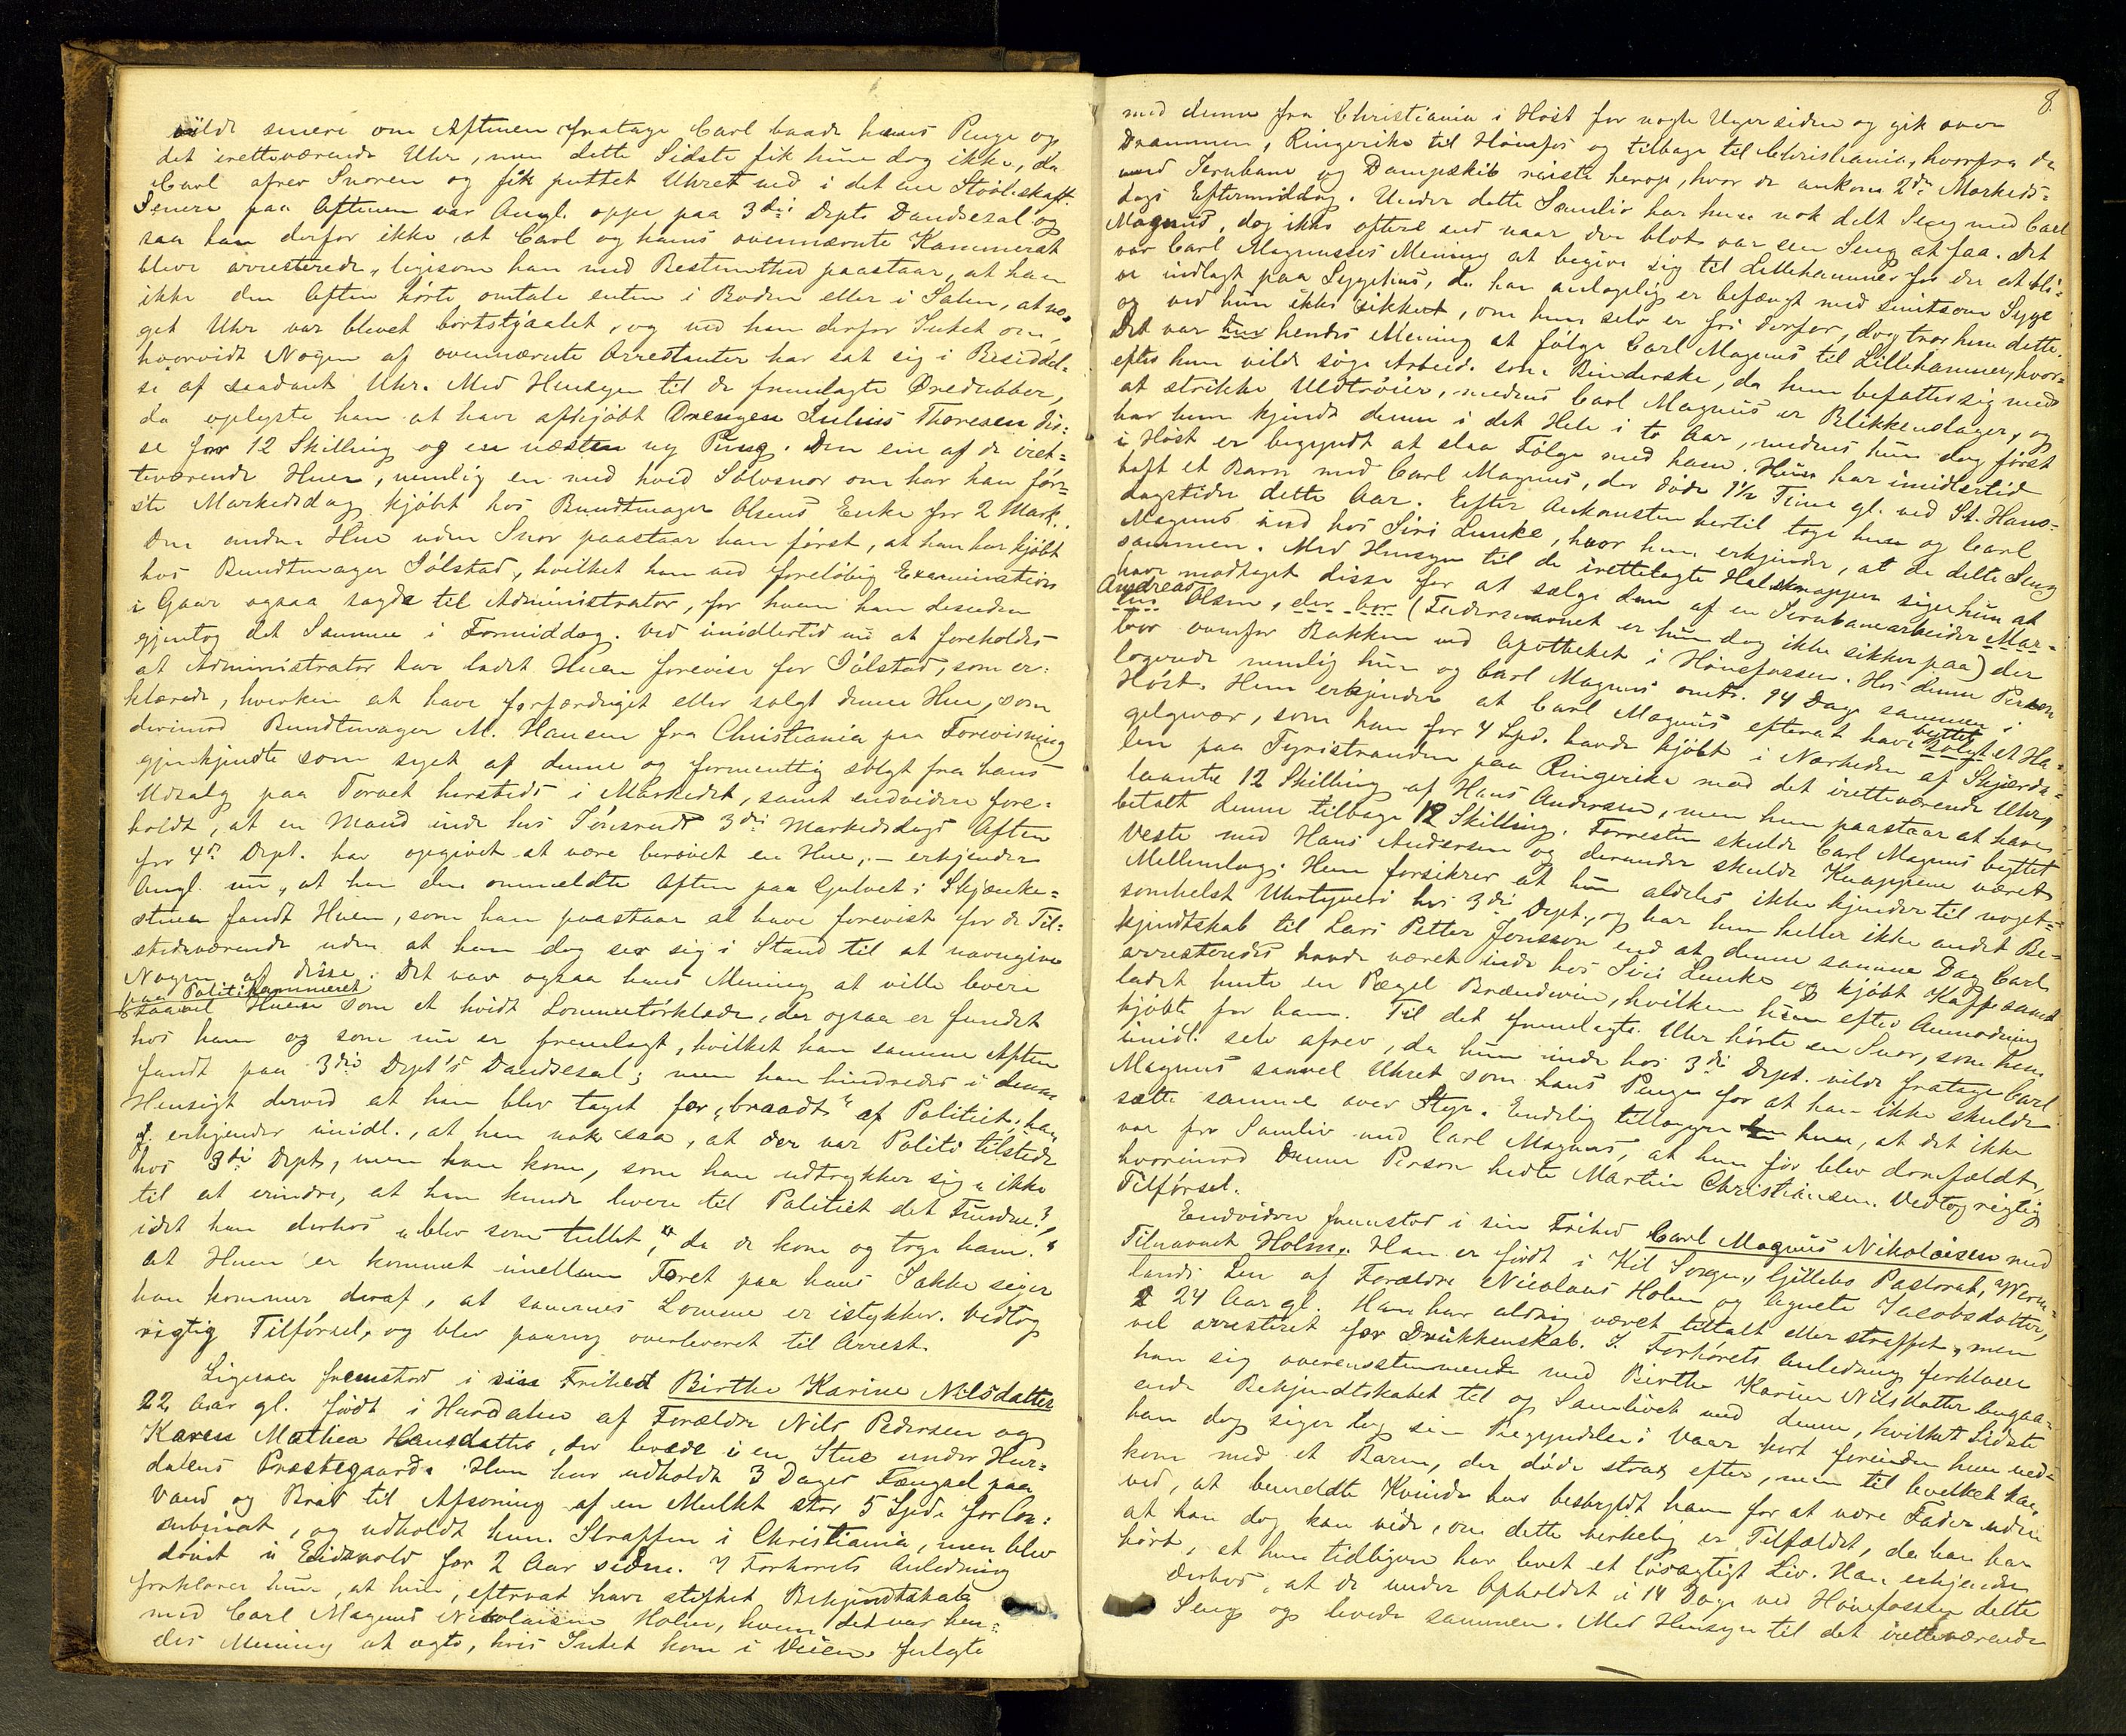 vilde senere om Aftenen fratage Carl baade hans Penge og
det iretteværende Uhr, men dette Sidste fik hun dog ikke, da
Carl afrev Snoren og fik puttet Uhret ned i det ene Støvleskaft.
Senere paa Aftenen var Angl. oppe paa 3die Dpts Dandsesal og
saa han derfor ikke, at Carl og hans ovennævnte Kammerat
bleve arresterede, ligesom han med Bestemthed paastaar, at han
ikke den Aften hørte omtale enten i Boden eller i Salen, at no-
get Uhr var blevet bortstjaalet, og ved han derfor Intet om,
hvorvidt Nogen af ovennævnte Arrestanter har sat sig i Besiddel-
se af saadant Uhr. Med Hensyn til de fremlagte Øredubber,
da oplyste han at have afkjøbt Drengen Julius Thoresen dis-
se for 12 Skilling og en næsten ny Pung. Den ene af de iret-
teværende Huer, nemlig en med hvid Sølvsnor om har han før-
ste Markedsdag kjøbt hos Bundtmager Olsens Enke for 2 Mark.
Den anden Hue uden Snor paastaar han først, at han har kjøbt
hos Bundtmager Jølstad, hvilket han ved foreløbig Examination
i Gaar ogsaa sagde til Administrator, for hvem han desuden
gjentog det Samme i Formiddag. Ved imidlertid nu at foreholdes
at Administrator har ladet Huen forevise for Jølstad, som er-
klærede, hverken at have forfærdiget eller solgt denne Hue, som
derimod Bundtmager M. Hansen fra Christiania paa Forevisning
gjenkjendte som syet af denne og formentlig solgt fra hans
Udsalg paa Torvet hersteds i Markedet, samt endvidere fore-
holdt, at en Mand inde hos Tønsrud 3die Markedsdags Aften
for 4de Dept. har opgivet at være berøvet en Hue, - erkjender
Angl. nu, at han den ommeldte Aften paa Gulvet i Skjænke-
stuen fandt Huen, som han paastaar at have forevist for de Til-
stedeværende uden at han dog ser sig i Stand til at navngive
Nogen af disse. Det var ogsaa hans Mening at ville levere
paa Politikammeret
saavel Huen som et hvidt Lommetørklæde, der ogsaa er fundet
hos ham og som nu er fremlagt, hvilket han samme Aften
fandt paa 3die Dept's Dandsesal; men han hindredes i denne
Hensigt derved at han blev taget for „braadt“ af Politiet; han
erkjender imidl., at han nok saa, at der var Politi tilstede
hos 3die Dept, men han kom, som han udtrykker sig „ikke
til at erindre, at han kunde levere til Politiet det Fundne“,
idet han derhos „blev som tullet, da de kom og toge ham.“
At Huen er kommet imellem Foret paa hans Jakke siger
han kommer deraf, at sammes Lomme er istykker. Vedtog
rigtig Tilførsel, og blev paany overleveret til Arrest.
Ligesaa fremstod i sin Frihed Birthe Karine Nilsdatter
22 Aar gl. født i Hurdalen af Forældre Nils Pedersen og
Karen Mathea Hansdatter, der levede i en Stue under Hur-
dalens Præstegaard. Hun har udholdt 3 Dages Fængsel paa
Vand og Brød til Afsoning af en Mulkt stor 5 Spd. for Con-
cubinat, og udholdt hun Straffen i Christiania, men blev
dømt i Eidsvold for 2 Aar siden. I Forhørets Anledning
forklarer hun, at hun, efterat have stiftet Bekjendtskab
med Carl Magnus Nikolaisen Holm, hvem det var hen-
des Mening at ægte, hvis Intet kom i Veien, fulgte
8.
med denne fra Christiania i Høst for nogle Uger siden og gik over
Drammen, Ringerike til Hønefos og tilbage til Christiania, hvorfra de
med Jernbane og Dampskib reiste herop, hvor de ankom 2den Markeds-
dags Eftermiddag. Under dette Samliv har hun nok delt Seng med Carl
Magnus, dog ikke oftere end naar der blot var een Seng at faa. Det
var Carl Magnusses Mening at begive sig til Lillehammer for der at bli-
ve indlagt paa Sygehus, da han antagelig er befængt med smitsom Syge
og ved hun ikke sikkert, om hun selv er fri derfor, dog tror hun dette.
Det var hendes Mening at følge Carl Magnus til Lillehammer, hvor-
efter hun vilde søge Arbeide som Binderske, da hun befatter sig med
at strikke Uldtrøier, medens Carl Magnus er Blikkenslager, og
har hun kjendt denne i det Hele i to Aar, medens hun dog først
i Høst er begyndt at slaa Følge med ham. Hun har imidlertid
havt et Barn med Carl Magnus, der døde 1½ Time gl. ved St. Hans-
dagstider dette Aar. Efter Ankomsten hertil toge hun og Carl
Magnus ind hos Siri Lunke, hvor hun erkjender, at de delte Seng
sammen. Med Hensyn til de irettelagte Halsknapper siger hun at
have modtaget disse for at sælge dem af en Jernbanearbeider Mar-
Andreas
tin Olsen, der bor (Fadersnavnet er hun dog ikke sikker paa) der
bor ovenfor Bakken ved Apotheket i Hønefossen. Hos denne Person
logerede nemlig hun og Carl Magnus omtr. 14 Dage sammen i
Høst. Hun erkjender at Carl Magnus efterat have solgt et Ha-
byttet
gelgevær, som han for 4 Spd. havde kjøbt i Nærheden af Skjærda-
len paa Tyristranden paa Ringerike mod det iretteværende Uhr,
laante 12 Skilling af Hans Andersen, men hun paastaar at have
betalt denne tilbage 12 Skilling. Forresten skulde Carl Magnus byttet
Veste med Hans Andersen og derunder skulde Knappene været
Mellemlag. Hun forsikrer at hun aldeles ikke kjender til noget-
somhelst Uhrtyveri hos 3die Dept., og har hun heller ikke andet Be-
kjendtskab til Lars Petter Jonsson end at denne samme Dag Carl
arresteredes havde været inde hos Siri Lunke og kjøbt Kaffe samt
ladet hente en Pægel Brændevin, hvilken hun efter Anmodning
kjøbte for ham. Til det fremlagte Uhr hørte en Snor, som hun
imidl. selv afrev, da hun inde hos 3die Dept. vilde fratage Carl
Magnus saavel Uhret som hans Penge for at han ikke skulde
sætte samme over Styr. Endelig tillægger hun, at det ikke
var for Samliv med Carl Magnus, at hun før blev domfældt,
hvorimod denne Person hedte Martin Christiansen. Vedtog rigtig
Tilførsel.
Endvidere fremstod i sin Frihed Carl Magnus Nikolaisen med
Tilnavnet Holm. Han er født i Kil Sogn, Gillebo Pastorat, Werm-
lands Len af Forældre Nicolaus Holm og Agnete Jacobsdatter,
24 Aar gl. Han har aldrig været tiltalt eller straffet, men
vel arresteret for Drukkenskab. I Forhørets Anledning forklarer
han sig overensstemmende med Birthe Karine Nilsdatter angaa-
ende Bekjendtskabet til og Samlivet med denne, hvilket Sidste
han dog siger tog sin Begyndelse i Vaar kort forinden hun ned-
kom med et Barn, der døde strax efter, men til hvilket han
ved, at bemeldte Kvinde har beskyldt ham for at være Fader uden
at han dog kan vide, om dette virkelig er Tilfældet, da han har
hørt, at hun tidligere har levet et løsagtigt Liv. Han erkjender
derhos, at de under Opholdet i 14 Dage ved Hønefossen delte
Seng og levede sammen. Med Hensyn til det iretteværende